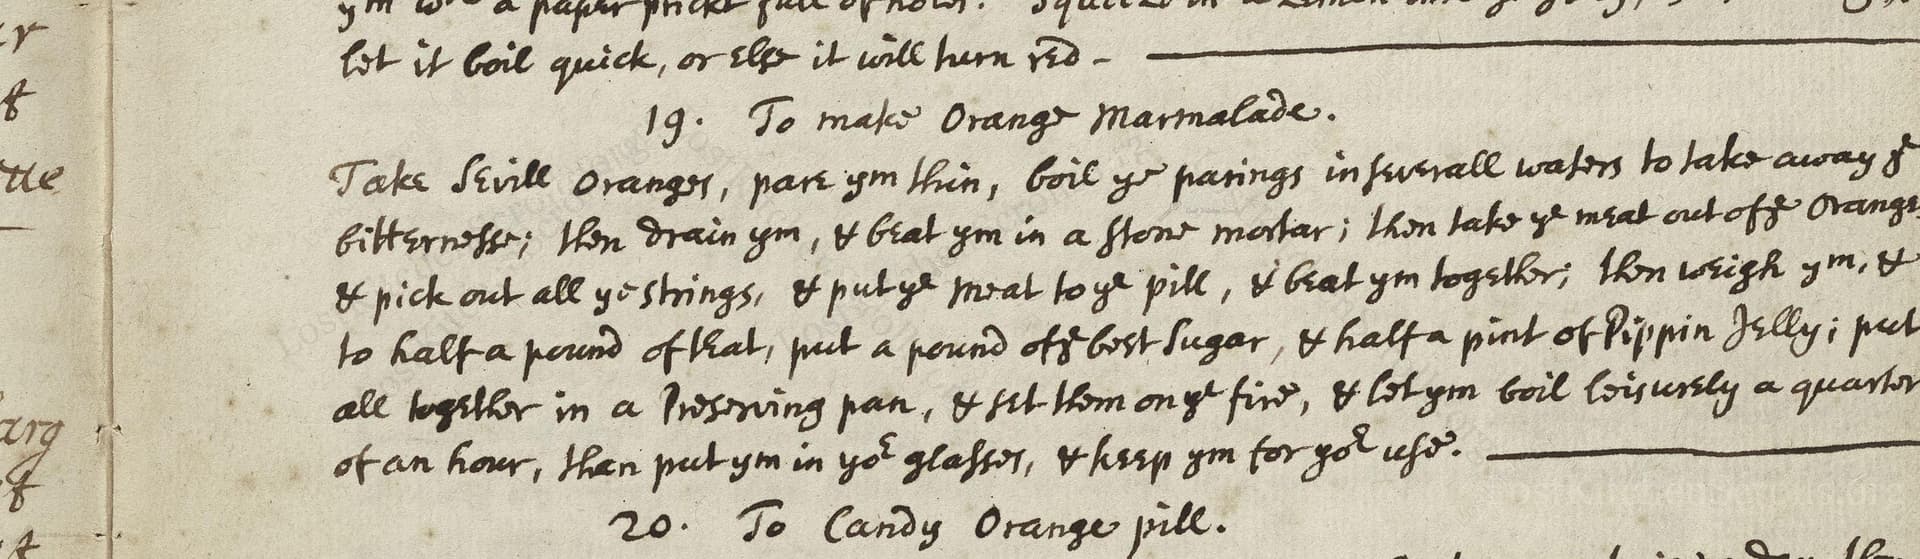 ym a paper prickt full of holes. Squeeze in a Lemon
let it boil quick, or else it will turn red -
19. To make Orange Marmalade.
Take Sevill Oranges, pare ym thin, boil ye parings in severall waters to take away ye
bitternesse; then drain ym, & beat ym in a stone mortar; then take ye meat out of ye Orange,
& pick out all ye strings, & put ye meat to ye pill, & beat ym together; then weigh ym, &
to half a pound of that, put a pound of ye best Sugar, & half a pint of Pippin Jelly; put
all together in a Preserving pan, & set them on ye fire, & let ym boil leisurely a quarter
of an hour, than put ym in yor glasses, & keep ym for yor use.
20. To Candy Orange pill.